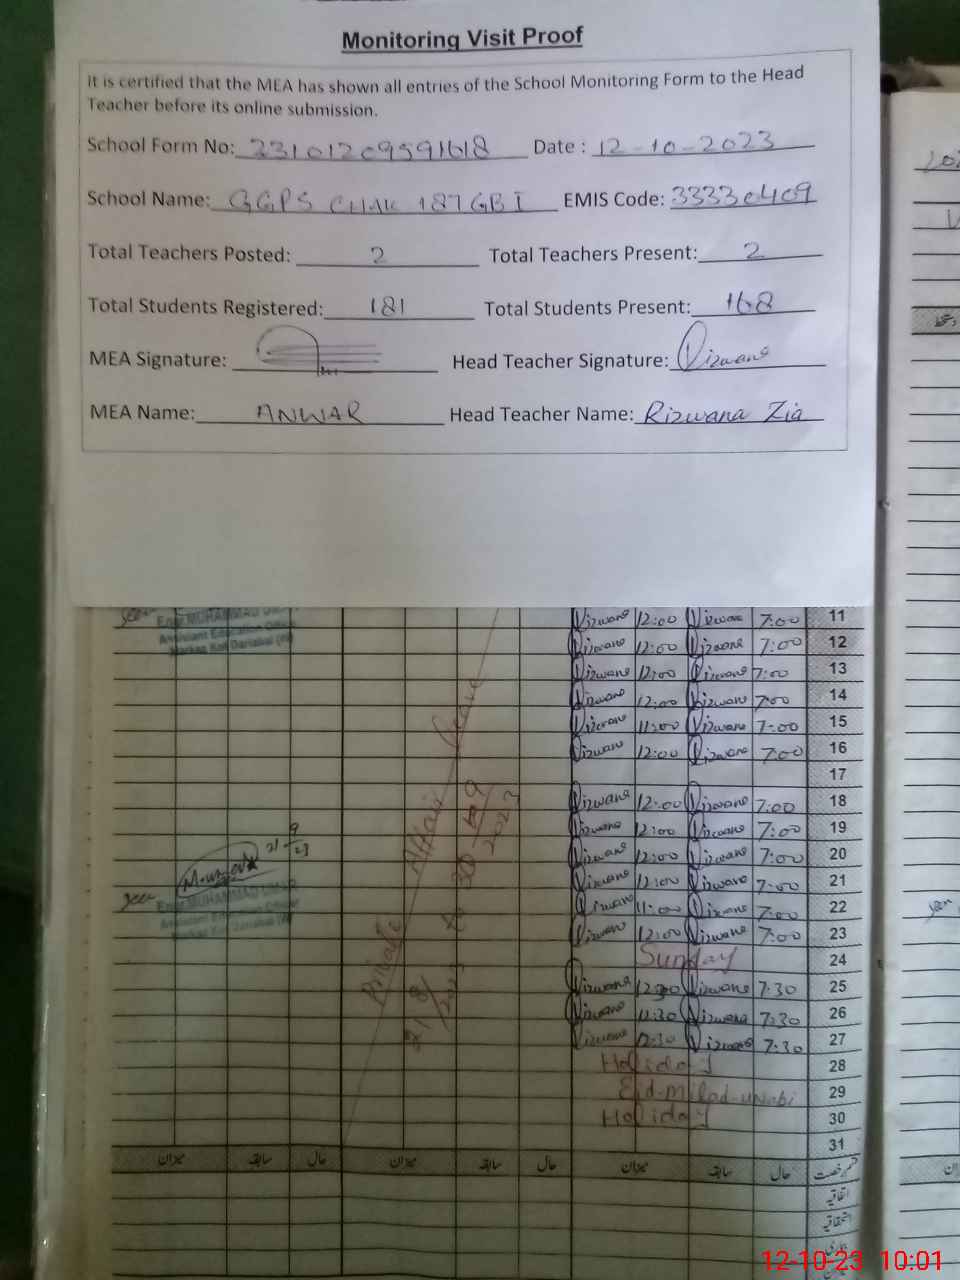 Monitoring Visit Proof
It is certified that the MEA has shown all entries of the School Monitoring Form to the Head
Teacher before its online submission.
School Form No: 23101209591618 Date : 12-10-2023
School Name: GGPS CHAK 187 GB I EMIS Code: 33330409
Total Teachers Posted: 2 Total Teachers Present: 2
Total Students Registered: 181 Total Students Present: 168
MEA Signature: Head Teacher Signature: Rizwana
MEA Name: ANWAR Head Teacher Name: Rizwana Zia
Rizwana 12:00 Rizwana 7:00 11
MUHAMMAD UMAR
Assistant Education Officer
Rizwana 12:00 Rizwana 7:00 12
Rizwana 12:00 Rizwana 7:00 13
Rizwana 12:00 Rizwana 7:00 14
Rizwana 11:00 Rizwana 7:00 15
Rizwana 12:00 Rizwana 7:00 16
17
Rizwana 12:00 Rizwana 7:00 18
Rizwana 12:00 Rizwana 7:00 19
Rizwana 12:00 Rizwana 7:00 20
Rizwana 12:00 Rizwana 7:00 21
Rizwana 11:00 Rizwana 7:00 22
Rizwana 12:00 Rizwana 7:00 23
Sunday 24
Rizwana Rizwana 7:30 25
Rizwana Rizwana 7:30 26
Rizwana 12:30 Rizwana 7:30 27
Holiday 28
Eid-Milad-un-nabi 29
Holiday 30
31
Private Affair Leave
21 9 23
MUHAMMAD UMAR
Assistant Education Officer
میزان سابقہ حال میزان سابقہ حال میزان سابقہ حال قسم رخصت
اتفاقیہ
استحقاقیہ
12-10-23 10:01